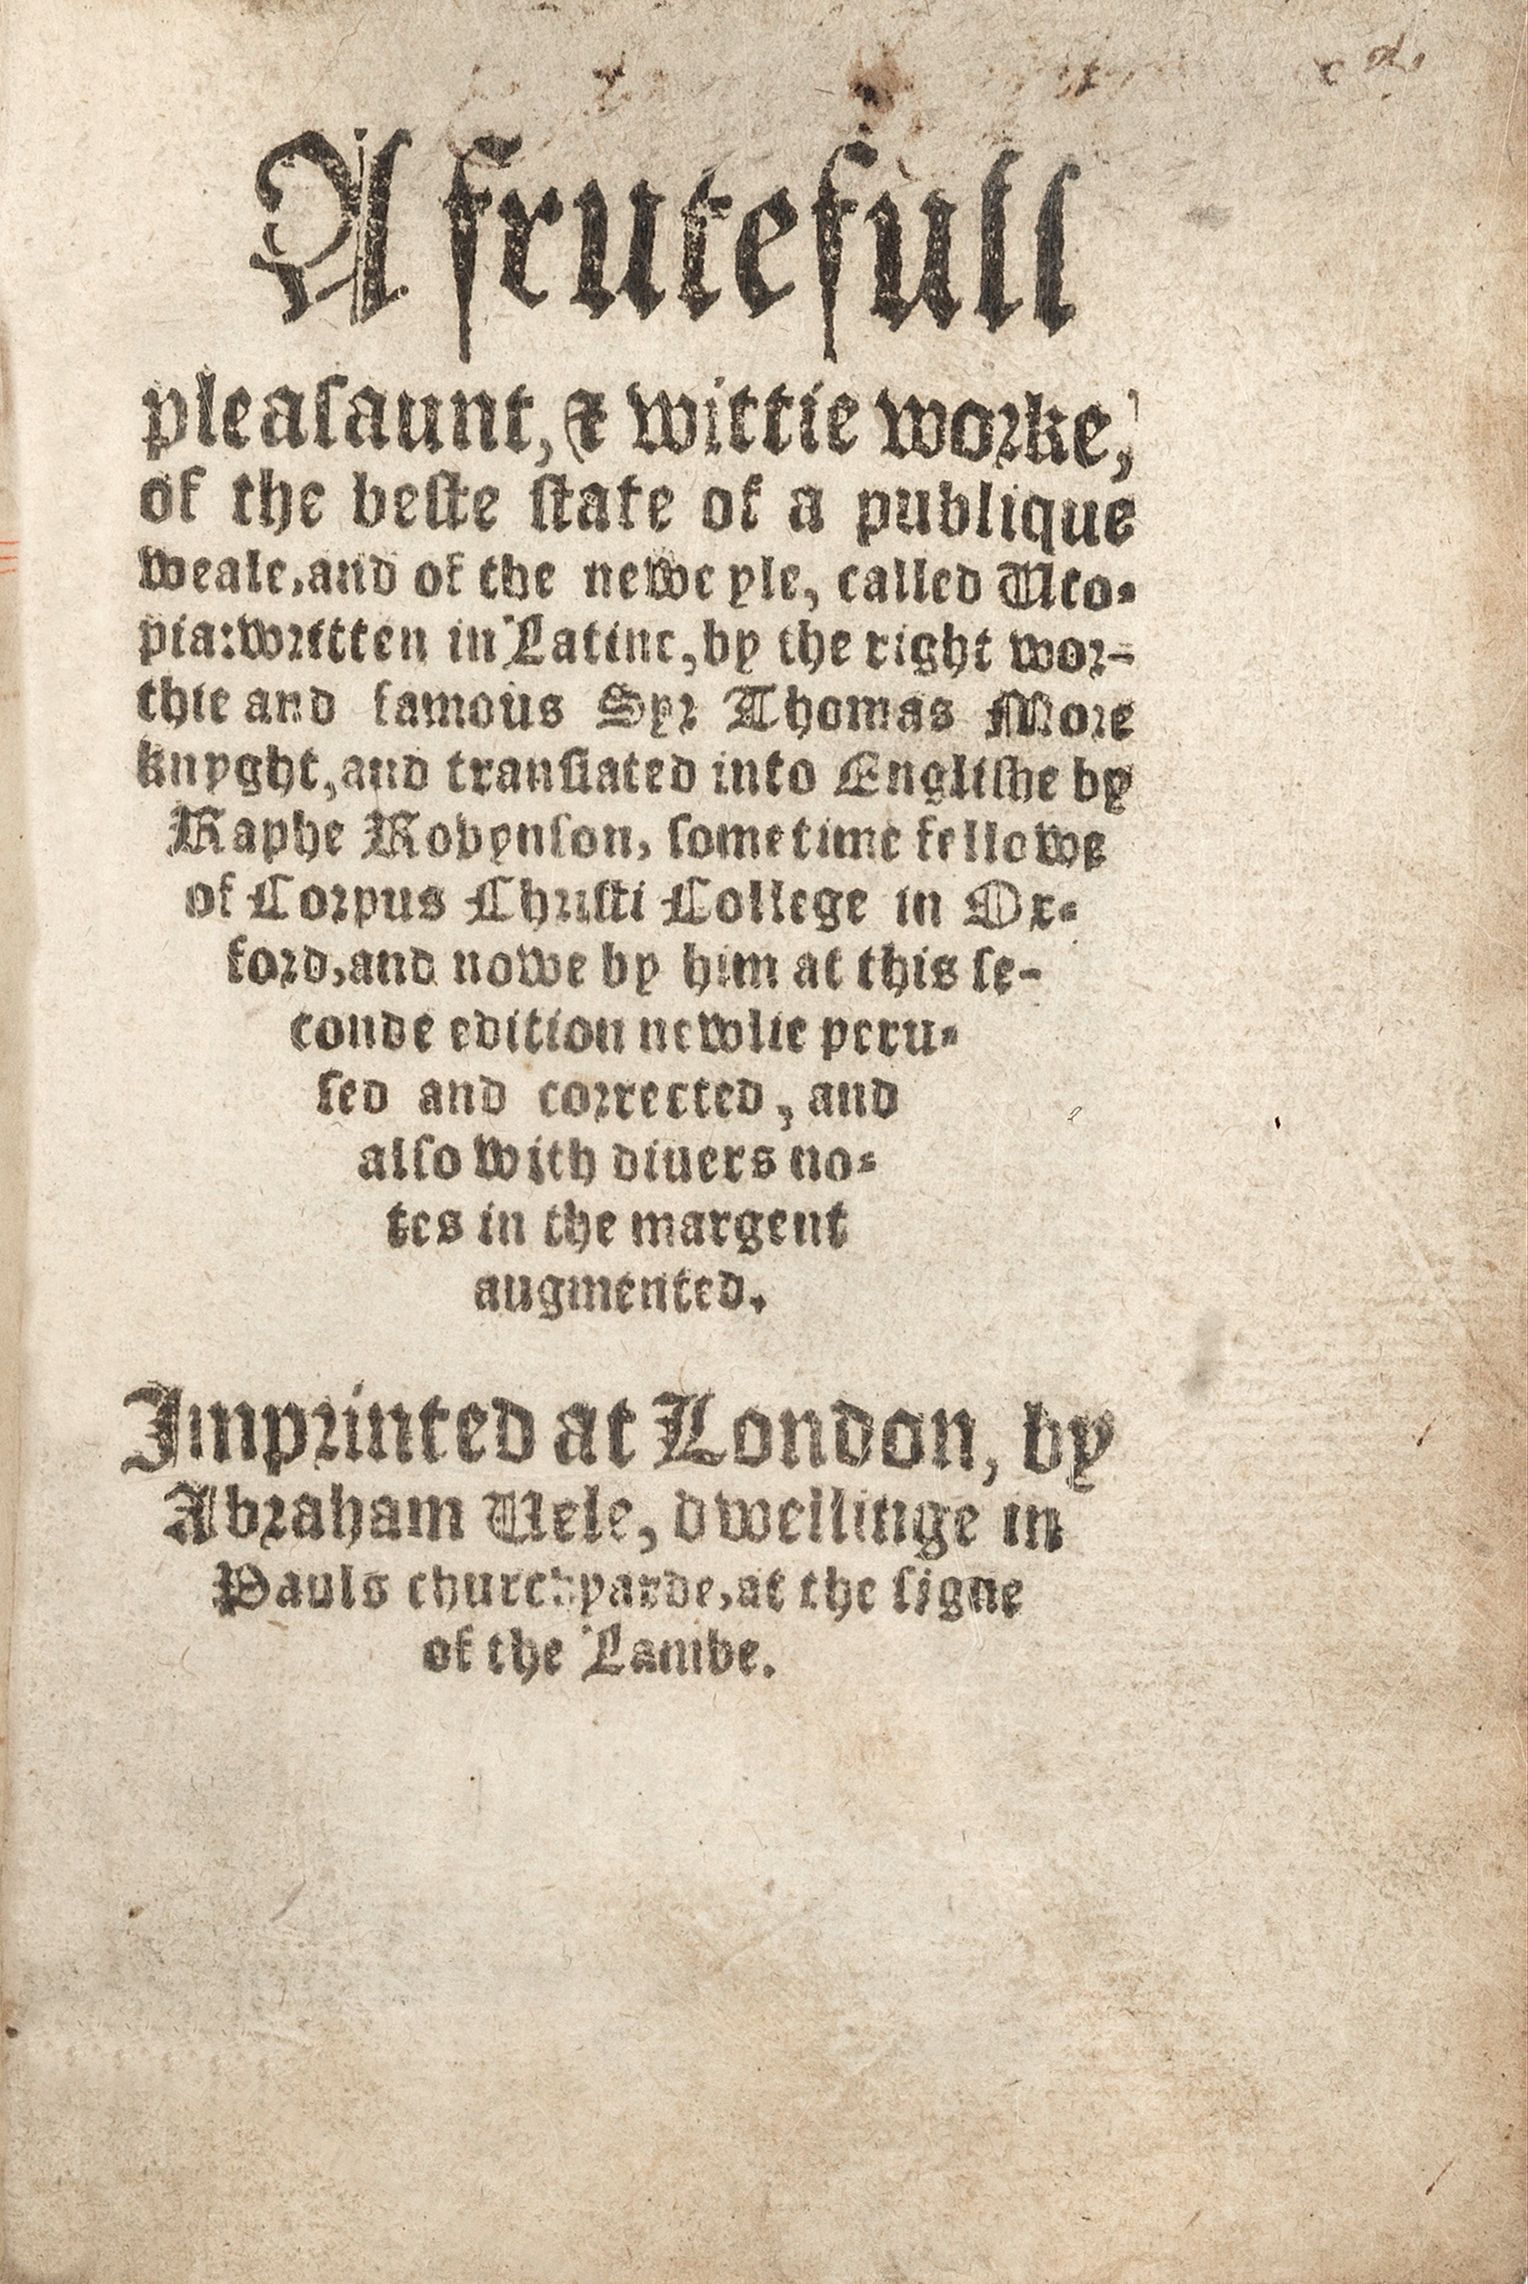 A frutefull
pleaſaunt, & wittie worke,
of the beſte ſtate of a publique
weale, and of the newe yle, called Uto-
pia: written in Latine, by the right wor-
thie and famous Syr Thomas More
knyght, and tranſlated into Engliſhe by
Raphe Robynſon, ſometime fellowe
of Corpus Chriſti College in Ox-
ford, and nowe by him at this ſe-
conde edition newlie peru-
ſed and corrected, and
alſo with diuers no-
tes in the margent
augmented.
Imprinted at London, by
Abraham Uele, dwellinge in
Pauls churchyarde, at the ſigne
of the Lambe.